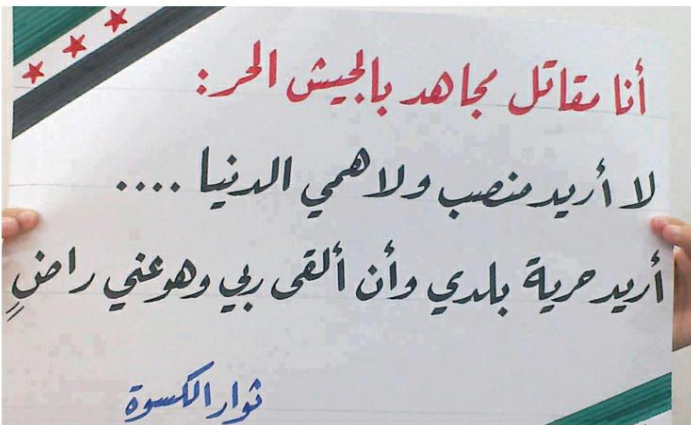 أنا مقاتل مجاهد بالجيش الحر:
لا أريد منصب ولا همي الدنيا ....
أريد حرية بلدي وأن ألقى ربي وهو عني راضٍ
ثوار الكسوة